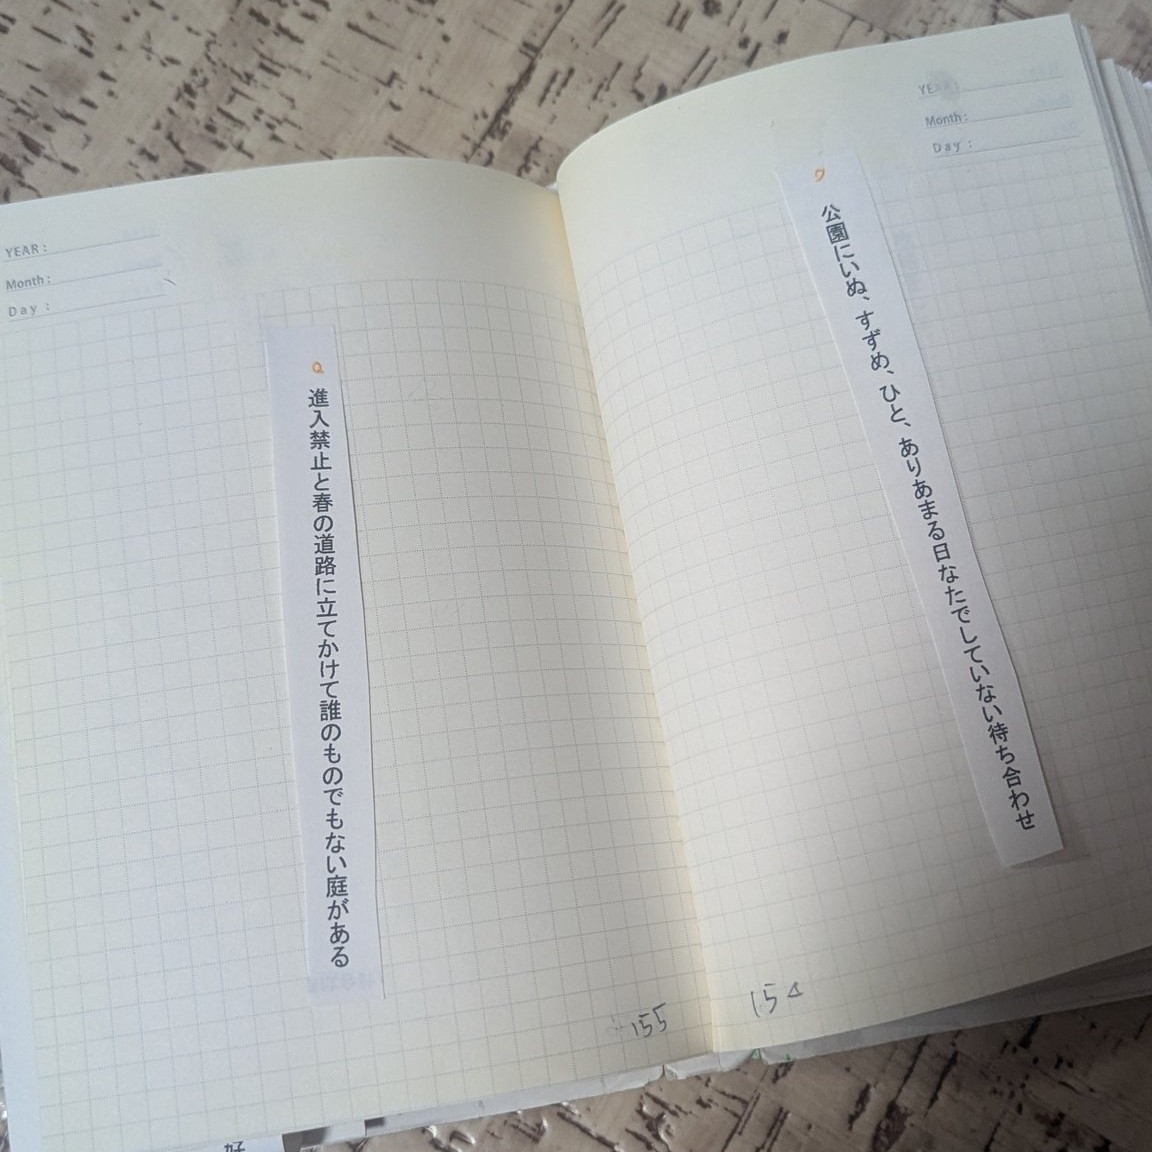 YEAR :
Month :
Day :
公園にいぬ、すずめ、ひと、ありあまる日なたでしていない待ち合わせ
154
YEAR :
Month :
Day :
進入禁止と春の道路に立てかけて誰のものでもない庭がある
155
好